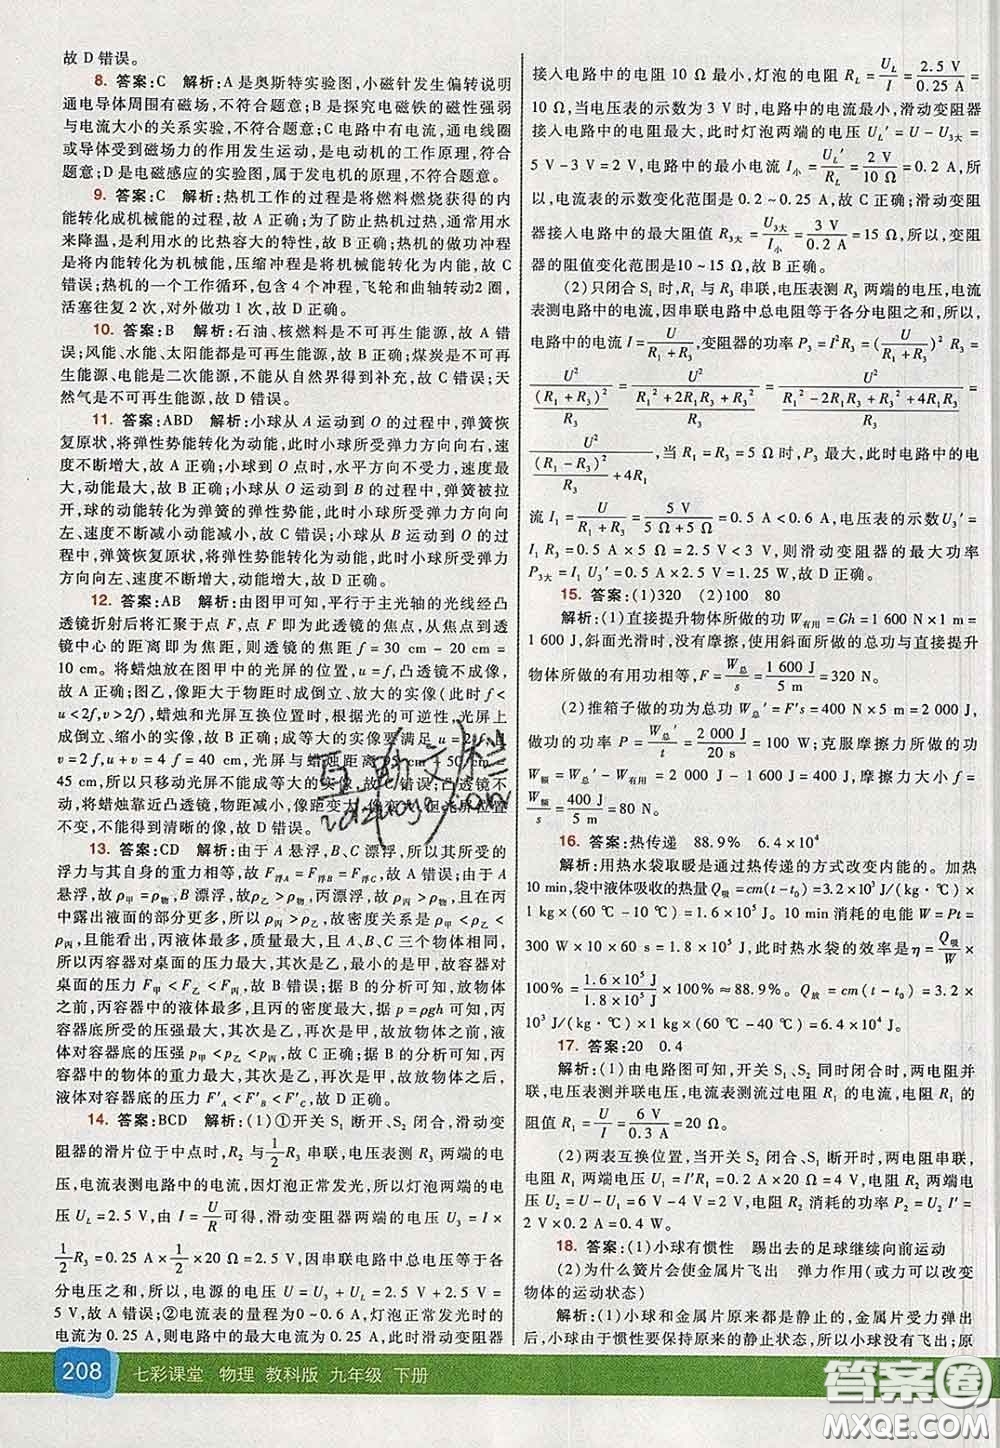 故 D 错误。
8. 答案:C 解析:A 是奥斯特实验图,小磁针发生偏转说明
通电导体周围有磁场,不符合题意;B 是探究电磁铁的磁性强弱
与电流大小的关系实验,不符合题意;C 电路中有电流,通电线圈
或导体受到磁场力的作用发生运动,是电动机的工作原理,符合
题意;D 是电磁感应的实验图,属于发电机的原理,不符合题意。
9. 答案:C 解析:热机工作的过程是将燃料燃烧获得的内
能转化成机械能的过程,故 A 正确;为了防止热机过热,通常用水
来降温,是利用水的比热容大的特性,故 B 正确;热机的做功冲程
是将内能转化为机械能,压缩冲程是将机械能转化为内能,故 C
错误;热机的一个工作循环,包含 4 个冲程,飞轮和曲轴转动2 圈,
活塞往复 2 次,对外做功 1 次,故 D 正确。
10. 答案:B 解析:石油、核燃料是不可再生能源,故 A 错
误;风能、水能、太阳能都是可再生能源,故 B 正确;煤炭是不可再
生能源、电能是二次能源,不能从自然界得到补充,故 C 错误;天
然气是不可再生能源,故 D 错误。
11. 答案:ABD 解析:小球从 A 运动到 O 的过程中,弹簧恢
复原状,将弹性势能转化为动能,此时小球所受弹力方向向右,速
度不断增大,故 A 正确;小球到 O 点时,水平方向不受力,速度最
大,动能最大,故 B 正确;小球从 O 运动到 B 的过程中,弹簧被拉
开,球的动能转化为弹簧的弹性势能,此时小球所受弹力方向向
左、速度不断减小动能减小,故 C 错误;小球从 B 运动到 O 的过
程中,弹簧恢复原状,将弹性势能转化为动能,此时小球所受弹力
方向向左、速度不断增大,动能增大,故 D 正确。
12. 答案:AB 解析:由图甲可知,平行于主光轴的光线经凸
透镜折射后将汇聚于点 F,点 F 即为此透镜的焦点,且焦点到透
镜中心的距离即为焦距,则透镜的焦距 f = 30 cm - 20 cm =
10 cm。将蜡烛放在图甲中的光屏的位置,u = f,凸透镜不成像,
故 A 正确;图乙,像距大于物距时成倒立、放大的实像(此时 f <
u < 2f,v > 2f),蜡烛和光屏互换位置时,根据光的可逆性,光屏上
成倒立、缩小的实像,故 B 正确;成等大的实像要满足 u = 2f,且
v = 2f,u + v = 4f = 40 cm,
45 cm,所以只移动光屏不能成等大的实像,故 C 错误;凸透镜不动,
将蜡烛靠近凸透镜,物距变小,像距变大,像变大,但光屏位置
不变,不能得到清晰的像,故 D 错误。
13. 答案:CD 解析:由于 A 悬浮,B、C 漂浮,所以其所受的
浮力与其自身的重力相等,故 F浮A = F浮B = F浮C,故 A 错误;由于 A
悬浮,故 ρ甲 = ρ物,乙漂浮,故 ρ乙 > ρ物,丙漂浮,故 ρ丙 > ρ物,且在丙
中露出液面的部分更多,所以 ρ丙 > ρ乙,故液体密度是 ρ甲 < ρ乙 <
ρ丙,且据图可知,丙液体最多,质量最大,且三个物体相同,
所以丙容器对桌面的压力最大,其次是乙,最小的是甲,故容器对
容器对桌面的压力 F甲 < F乙 < F丙,故 B 错误;据 B 的分析可知,放物体
之前,丙容器中的液体最多,且丙的密度最大,故根据 p = ρgh 可知,丙
容器底所受的压强最大,其次是乙,再其次是甲,故放物体之前,液
体对容器底的压强 p甲 < p乙 < p丙,故 C 正确;据 B 的分析可知,
三容器中的物体的重力最大,其次是乙,再其次是甲,故放物体后,
液体对容器底的压力 F′A < F′B < F′C,故 D 正确。
14. 答案:BCD 解析:(1)①开关 S1 断开、S2 闭合,滑动变
阻器的滑片位于中点时,R2 与 1/2 R3 串联,电压表测 R3 两端的电
压,电流表测电路中的电流,因灯泡正常发光,所以,灯泡两端的电
压 UL = 2.5 V,由 I = U/R 可得,滑动变阻器两端的电压 U3 = I ×
1/2 R3 = 0.25 A × 1/2 × 20 Ω = 2.5 V,因串联电路中总电压等于各
分电压之和,所以,电源的电压 U = U3 + UL = 2.5 V + 2.5 V =
5 V,故 A 错误;②电流表的量程为0~0.6 A,灯泡正常发光时的
电流为 0.25 A,则电路中的最大电流为 0.25 A,此时滑动变阻器
接入电路中的电阻 10 Ω 最小,灯泡的电阻 RL = UL/I = 2.5 V/0.25 A =
10 Ω,当电压表的示数为 3 V 时,电路中的电流最小,滑动变阻器
接入电路中的电阻最大,此时灯泡两端的电压 UL′ = U - U3大 =
5 V - 3 V = 2 V,电路中的最小电流 I小 = UL′/RL = 2 V/10 Ω = 0.2 A,所
以,电流表的示数变化范围是 0.2 ~ 0.25 A,故 C 正确;滑动变阻
器接入电路中的最大阻值 R3大 = U3大/I小 = 3 V/0.2 A = 15 Ω,所以,变阻
器的阻值变化范围是10 ~ 15 Ω,故 B 正确。
(2)只闭合 S1 时,R1 与 R3 串联,电压表测 R3 两端的电压,电流
表测电路中的电流,因串联电路中总电阻等于各分电阻之和,所以,
电路中的电流 I = U/(R1 + R3),变阻器的功率 P3 = I²R3 = (U/(R1 + R3))² R3 =
U²/((R1 + R3)²/R3) = U²/((R1² + 2R1R3 + R3²)/R3) = U²/((R1² - 2R1R3 + R3² + 4R1R3)/R3) =
U²/((R1 - R3)²/R3 + 4R1),当 R1 = R3 = 5 Ω 时,P3 最大,此时电路中的电
流 I1 = U/(R1 + R3) = 5 V/(5 Ω + 5 Ω) = 0.5 A < 0.6 A,电压表的示数U3′ =
I1 R3 = 0.5 A × 5 Ω = 2.5 V < 3 V,则滑动变阻器的最大功率
P3大 = I1 U3′ = 0.5 A × 2.5 V = 1.25 W,故 D 正确。
15. 答案:(1)320 (2)100 80
解析:(1)直接提升物体所做的功 W有用 = Gh = 1 600 N × 1 m =
1 600 J,斜面光滑时,没有摩擦,使用斜面所做的总功与直接提升
物体所做的有用功相等,F = W总/s = 1 600 J/5 m = 320 N。
(2)推箱子做的功为总功 W总′ = F′s = 400 N × 5 m = 2 000 J,
做功的功率 P = W总′/t = 2 000 J/20 s = 100 W;克服摩擦力所做的功
W额 = W总′ - W有用 = 2 000 J - 1 600 J = 400 J,摩擦力大小 f =
W额/s = 400 J/5 m = 80 N。
16. 答案:热传递 88.9% 6.4 × 10⁴
解析:用热水袋取暖是通过热传递的方式改变内能的。加热
10 min,袋中液体吸收的热量 Q吸 = cm(t - t0) = 3.2 × 10³ J/(kg·℃) ×
1 kg × (60 ℃ - 10 ℃) = 1.6 × 10⁵ J。10 min 消耗的电能 W = Pt =
300 W × 10 × 60 s = 1.8 × 10⁵ J,此时热水袋的效率是 η = Q吸/W ×
100% = 1.6 × 10⁵ J/1.8 × 10⁵ J × 100% ≈ 88.9%。Q放 = cm(t - t0) = 3.2 ×
10³ J/(kg·℃) × 1 kg × (60 ℃ - 40 ℃) = 6.4 × 10⁴ J。
17. 答案:20 0.4
解析:(1)由电路图可知,开关 S1、S2 同时闭合时,两电阻并
联,电压表测并联电压,电流表测流过电阻 R1 的电流,电阻 R1 的
阻值 R1 = U/I = 6 V/0.3 A = 20 Ω。
(2)两表互换位置,当开关 S2 闭合、S1 断开时,两电阻串联,
电阻 R1 两端电压 U1 = I′R1 = 0.2 A × 20 Ω = 4 V,电阻 R2 两端电压
U2 = U - U1 = 6 V - 4 V = 2 V,电阻 R2 消耗的功率 P2 = U2 I′ =
2 V × 0.2 A = 0.4 W。
18. 答案:(1)小球有惯性 踢出去的足球继续向前运动
(2)为什么簧片会使金属片飞出 弹力作用(或力可以改变
物体的运动状态)
解析:(1)小球和金属片原来都是静止的,金属片受力弹出
后,小球由于惯性要保持原来的静止状态,所以小球没有飞出;原
208 七彩课堂 物理 教科版 九年级 下册
答案圈
MXQE.COM